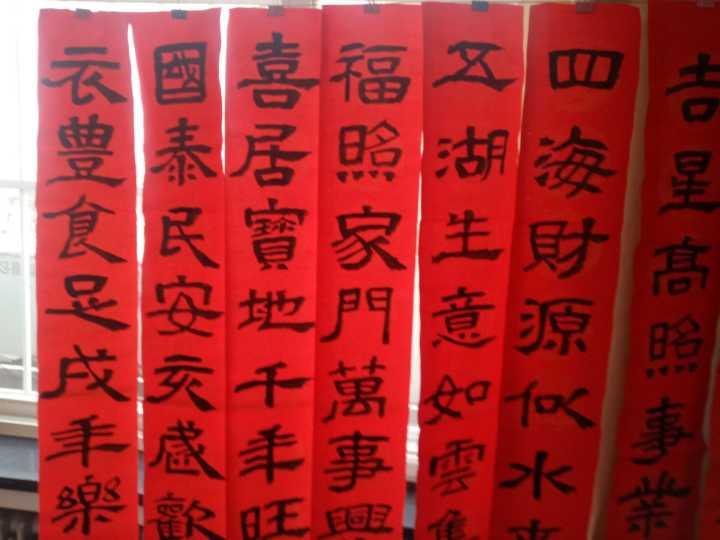 衣豐食足戌年樂
國泰民安亥歲歡
喜居寶地千年旺
福照家門萬事興
五湖生意如雲集
四海財源似水來
吉星髙照事業